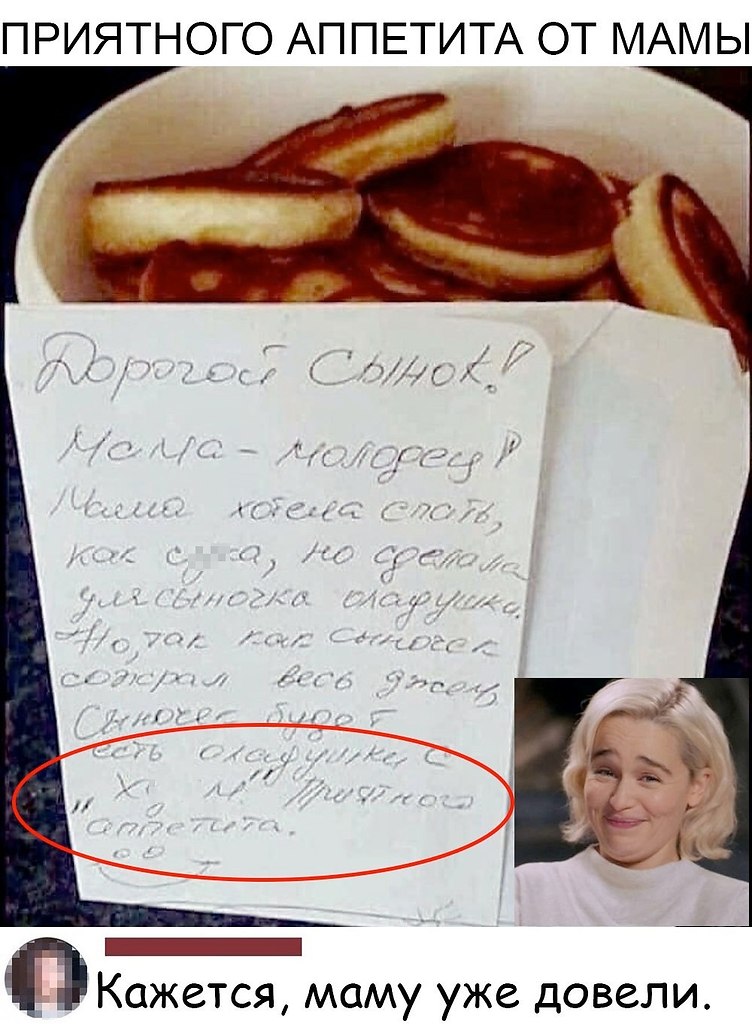 ПРИЯТНОГО АППЕТИТА ОТ МАМЫ
Дорогой Сынок!
Мама - молодец!
Мама хотела спать,
как с а, но сделала
для сыночка оладушки.
Но, так как Сыночек
сожрал весь джем,
Сыночек будет
есть оладушки с
Х м" Приятного
"аппетита.
Кажется, маму уже довели.